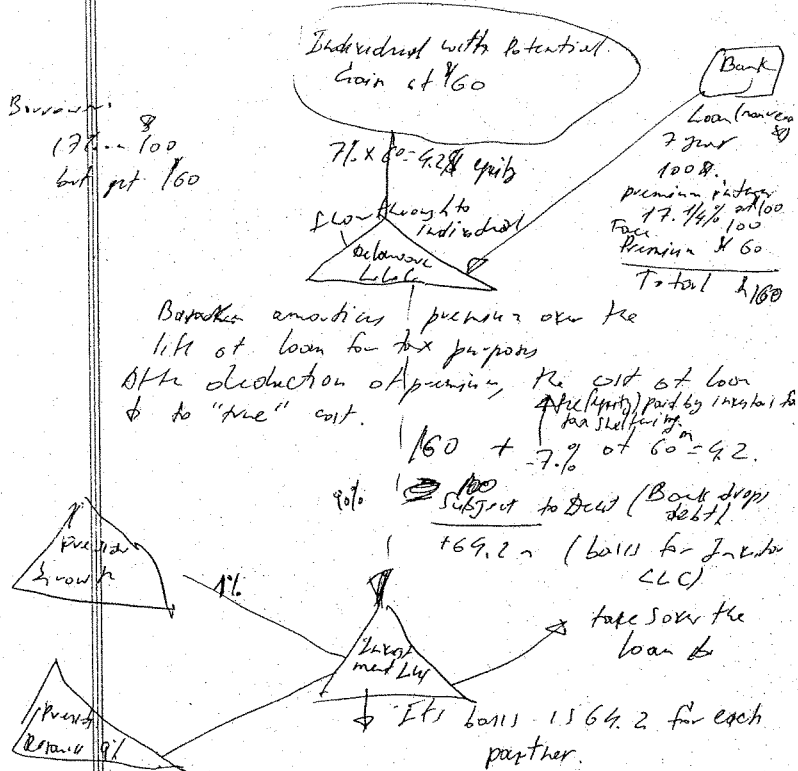 Individual with Potential
Gain of $60
Bank
Loan (
7 year
100 $
premium
17.1/4% of 100
Face 100
Premium $ 60
Total $ 160
Borrower:
17% 100
but get 160
7% x 60 = 4.2 $ equity
flow through to
individual
Delaware
L.L.C.
amortizes premium over the
life of loan for tax purposes
deduction of premium, the cost of loan
to "true" cost.
fee (equity) paid by investor for
tax sheltering.
160 +
7.% of 60 = 4.2.
90% 100
Subject to Debt (Bank drops
debt)
+64.2 (basis for Investor
LLC)
Growth
1%
takes over the
loan
Invest
ment
Its basis is 64.2 for each
partner.
9%